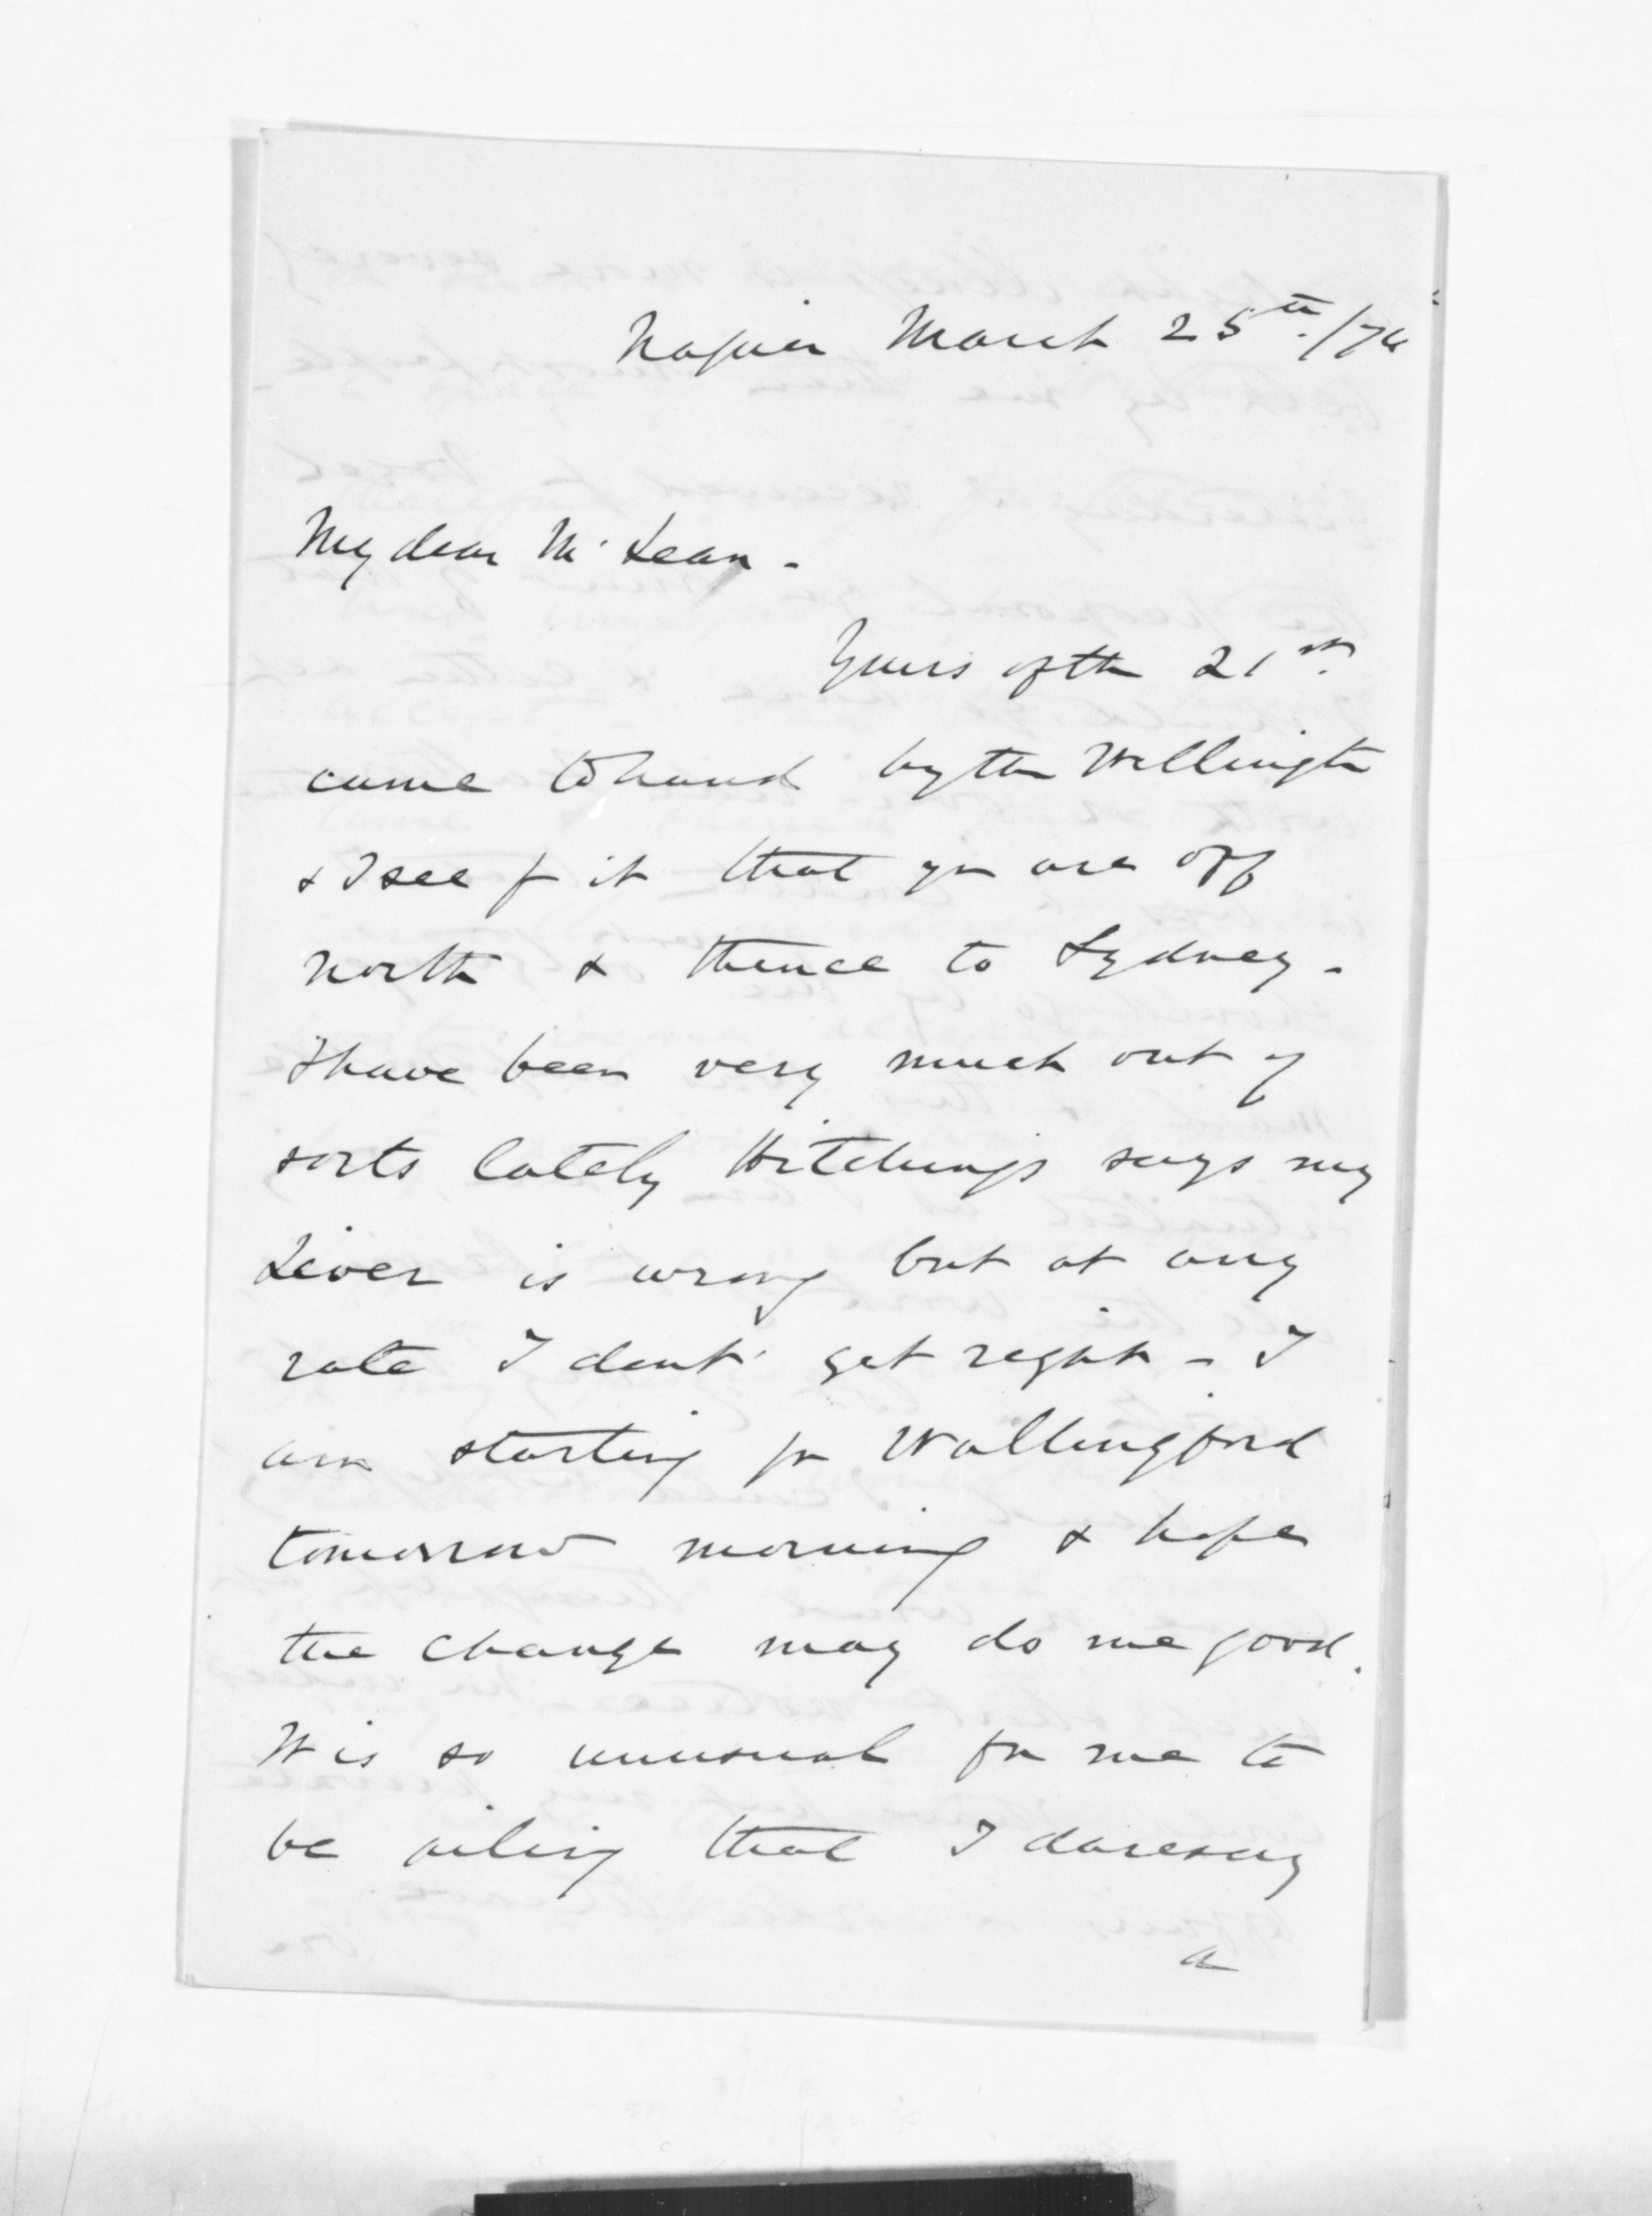 Napier March 25th./74
My dear McLean.
Yours of the 21st.
came to hand by the Wellington
& I see fr it that you are off
north & thence to Sydney.
I have been very much out of
sorts lately Hitchings says my
Liver is wrong but at any
rate I dont get right - I
am starting for Wallingford
tomorrow morning & hope
the change may do me good.
It is so unusual for me to
be ailing that I daresay
a